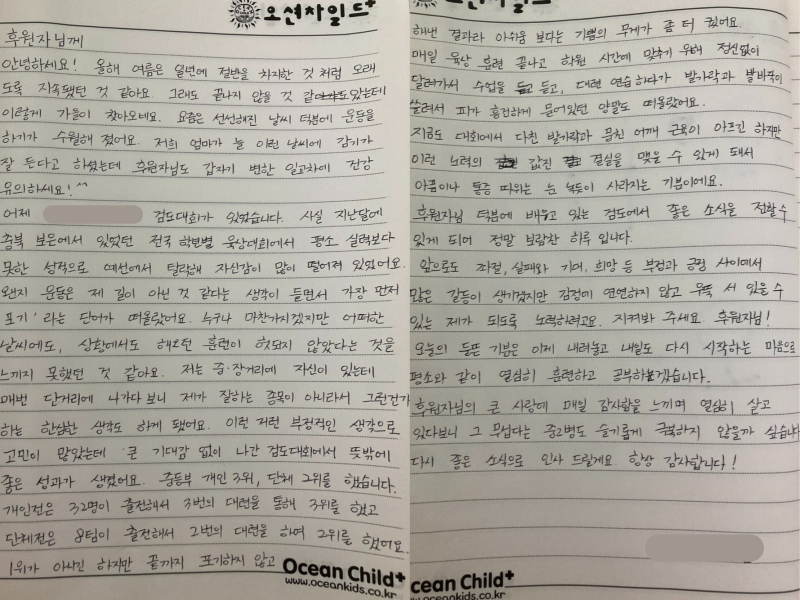 오션차일드+
후원자님께
안녕하세요! 올해 여름은 일년에 절반을 차지한 것 처럼 오래
도록 지속됐던 것 같아요. 그래도 끝나지 않을 것 같았는데
이렇게 가을이 찾아오네요. 요즘은 선선해진 날씨 덕분에 운동을
하기가 수월해 졌어요. 저희 엄마가 늘 이런 날씨에 감기가
잘 든다고 하셨는데 후원자님도 갑자기 변한 일교차에 건강
유의하세요!^^
어제 검도대회가 있었습니다. 사실 지난달에
충북 보은에서 있었던 전국 학년별 육상대회에서 평소 실력보다
못한 성적으로 예선에서 탈락해 자신감이 많이 떨어져 있었어요.
왠지 운동은 제 길이 아닌 것 같다는 생각이 들면서 가장 먼저
'포기' 라는 단어가 떠올랐어요. 누구나 마찬가지겠지만 어떠한
날씨에도, 상황에서도 해오던 훈련이 헛되지 않았다는 것을
느끼지 못했던 것 같아요. 저는 중·장거리에 자신이 있는데
매번 단거리에 나가다 보니 제가 잘하는 종목이 아니라서 그런건가
하는 한심한 생각도 하게 됐어요. 이런 저런 부정적인 생각으로
고민이 많았는데 큰 기대감 없이 나간 검도대회에서 뜻밖에
좋은 성과가 생겼어요. 중등부 개인 3위, 단체 2위를 했습니다.
개인전은 32명이 출전해서 3번의 대련을 통해 3위를 했고
단체전은 8팀이 출전해서 2번의 대련을 하여 2위를 했어요.
1위가 아니긴 하지만 끝까지 포기하지 않고
Ocean Child+
www.oceankids.co.kr
오션차일드+
해낸 결과라 아쉬움 보다는 기쁨의 무게가 좀 더 컸어요.
매일 육상 훈련 끝나고 학원 시간에 맞추기 위해 정신없이
달려가서 수업을 듣고, 대련 연습하다가 발가락과 발바닥이
쓸려서 피가 흥건하게 묻어있던 양말도 떠올랐어요.
지금도 대회에서 다친 발가락과 뭉친 어깨 근육이 아프긴 하지만
이런 노력의 값진 결실을 맺을 수 있게 돼서
아픔이나 통증 따위는 눈 녹듯이 사라지는 기분이에요.
후원자님 덕분에 배우고 있는 검도에서 좋은 소식을 전할 수
있게 되어 정말 보람찬 하루 입니다.
앞으로도 좌절, 실패와 기대, 희망 등 부정과 긍정 사이에서
많은 갈등이 생기겠지만 감정에 연연하지 않고 우뚝 서 있을 수
있는 제가 되도록 노력하려고요. 지켜봐 주세요 후원자님!
오늘의 들뜬 기분은 이제 내려놓고 내일도 다시 시작하는 마음으로
평소와 같이 열심히 훈련하고 공부하겠습니다.
후원자님의 큰 사랑에 매일 감사함을 느끼며 열심히 살고
있다보니 그 무섭다는 중2병도 슬기롭게 극복하지 않을까 싶습니다
다시 좋은 소식으로 인사 드릴게요. 항상 감사합니다!
cean Child+
ww.oceankids.co.kr